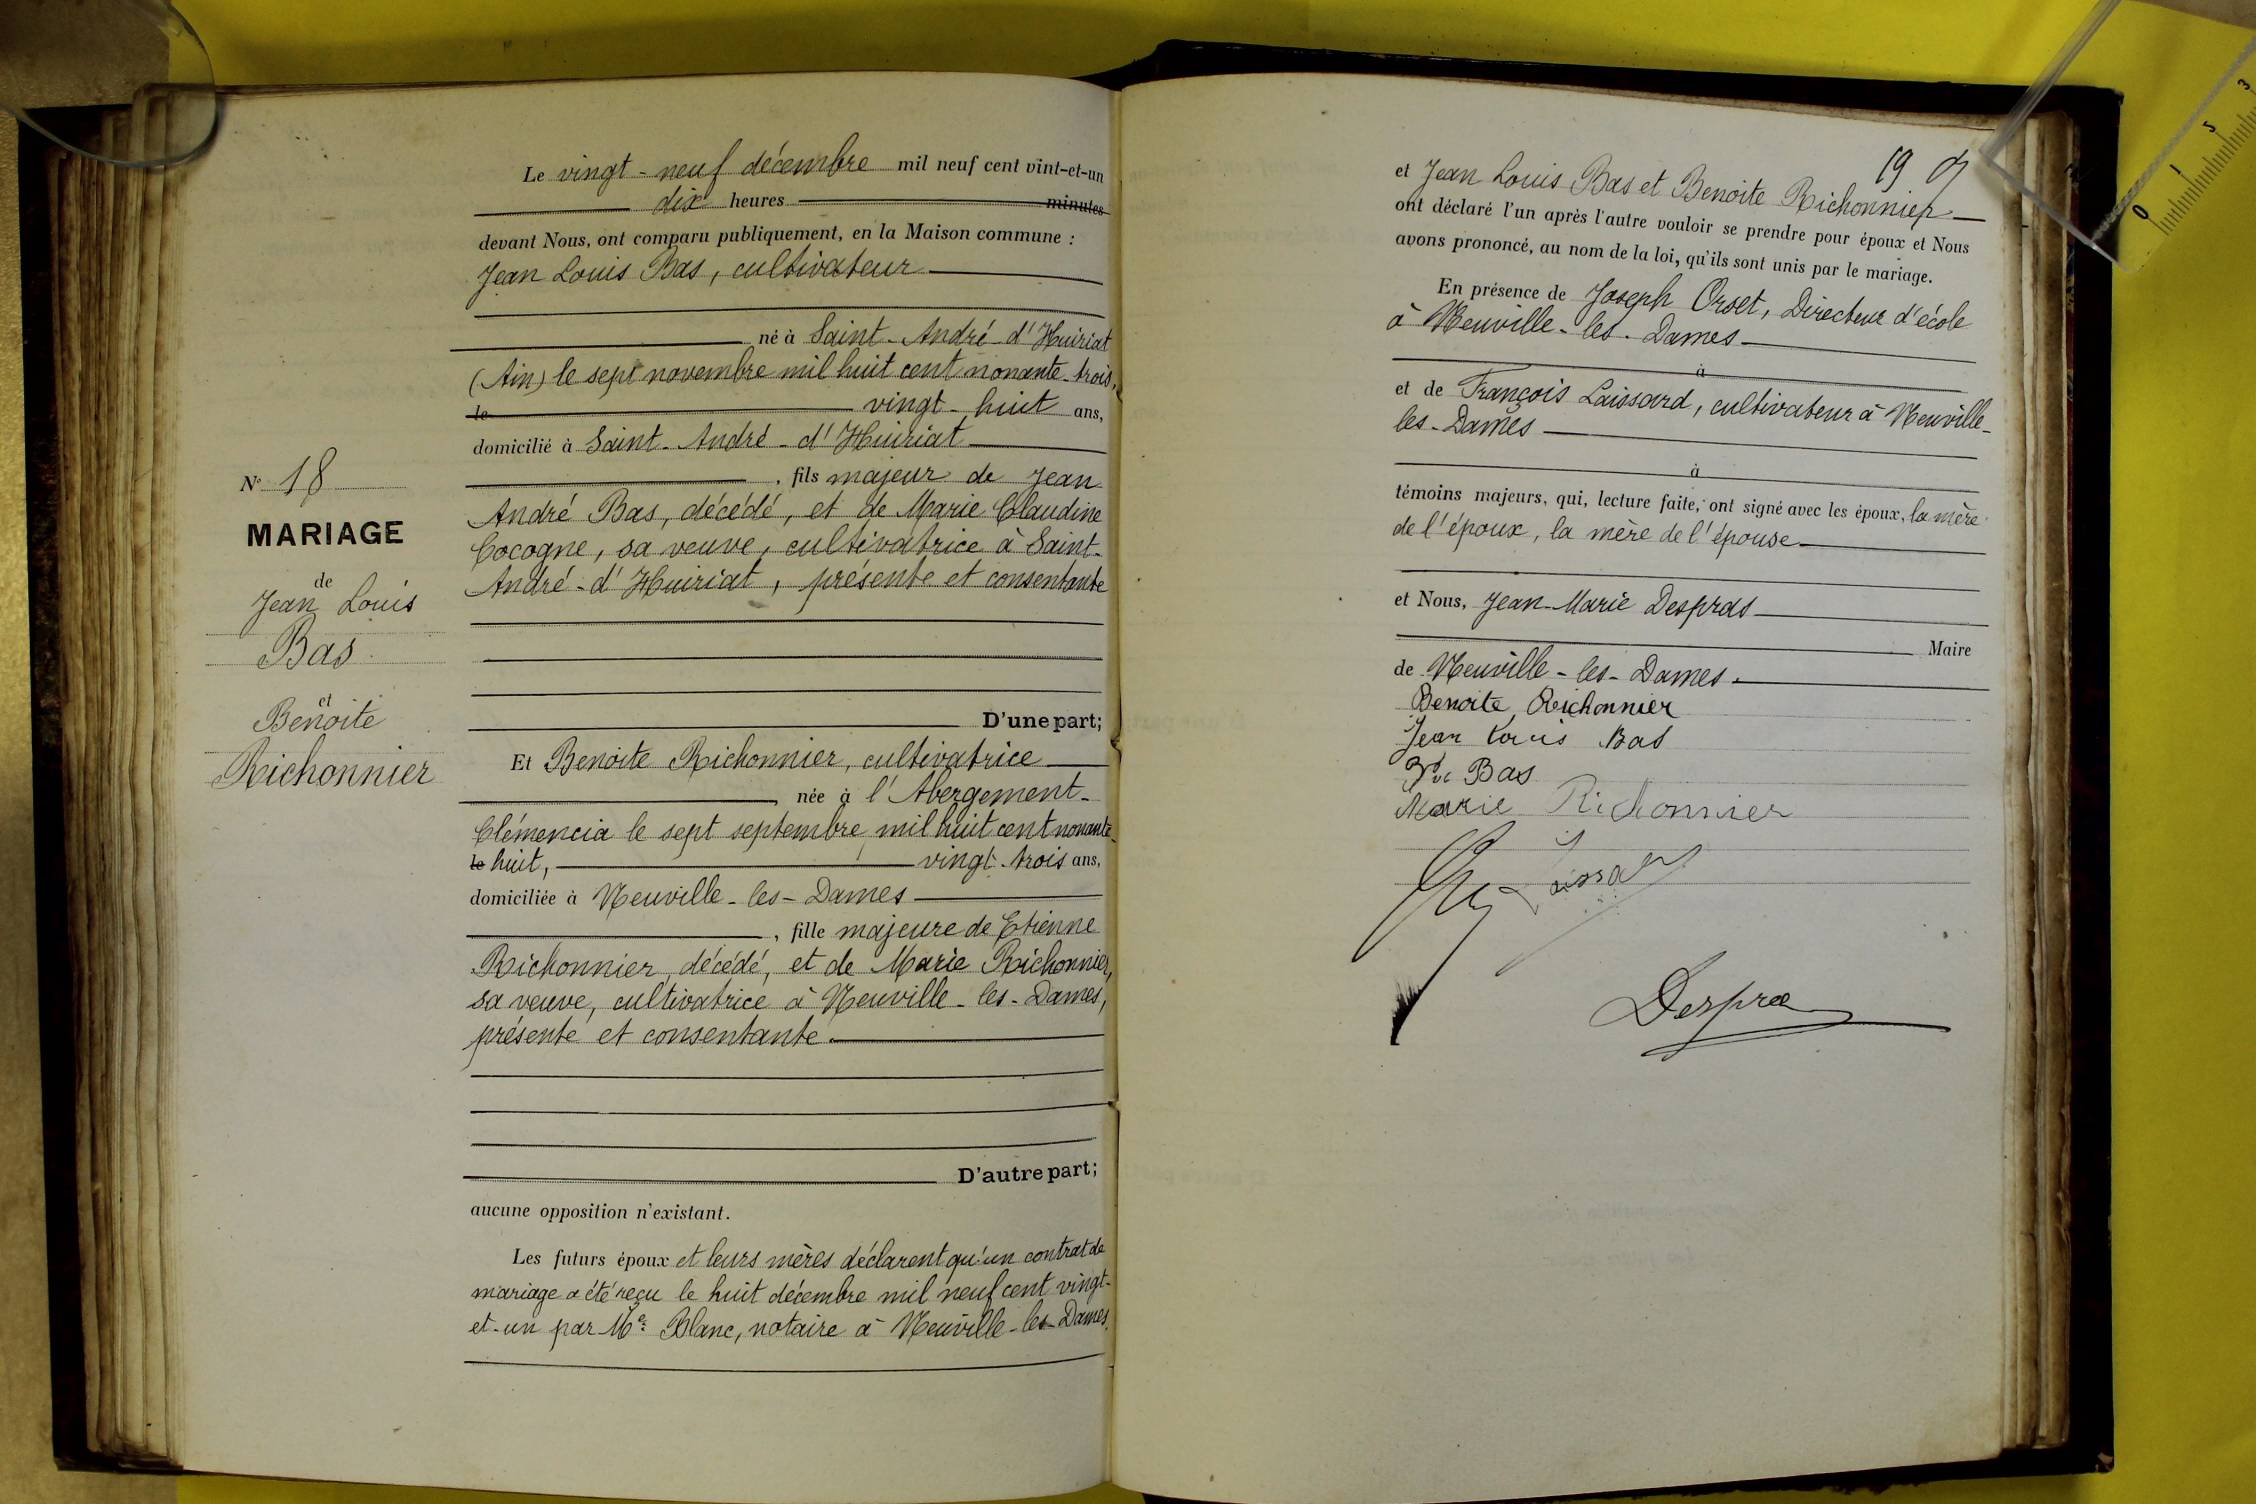 Le vingt-neuf décembre mil neuf cent vint-et-un
dix heures minutes
devant Nous, ont comparu publiquement, en la Maison commune :
Jean Louis Bas, cultivateur
né à Saint-André-d'Huiriat
(Ain) le sept novembre mil huit cent nonante-trois,
le vingt-huit ans,
domicilié à Saint-André-d'Huiriat
, fils majeur de Jean
André Bas, décédé, et de Marie Claudine
Cocogne, sa veuve, cultivatrice à Saint-
André-d'Huiriat, présente et consentante
D'une part;
Et Benoite Richonnier, cultivatrice
, née à l'Abergement-
Clémencia le sept septembre mil huit cent nonante-
le huit, vingt-trois ans,
domiciliée à Neuville-les-Dames
, fille majeure de Etienne
Richonnier, décédé, et de Marie Richonnier,
sa veuve, cultivatrice à Neuville-les-Dames,
présente et consentante.
D'autre part;
aucune opposition n'existant.
Les futurs époux et leurs mères déclarent qu'un contrat de
mariage a été reçu le huit décembre mil neuf cent vingt-
et-un par Me Blanc, notaire à Neuville-les-Dames.
N° 18
MARIAGE
de
Jean Louis
Bas
et
Benoite
Richonnier
19
et Jean Louis Bas et Benoite Richonnier
ont déclaré l'un après l'autre vouloir se prendre pour époux et Nous
avons prononcé, au nom de la loi, qu'ils sont unis par le mariage.
En présence de Joseph Orset, Directeur d'école
à Neuville-les-Dames
à
et de François Laissard, cultivateur à Neuville-
les-Dames
à
témoins majeurs, qui, lecture faite, ont signé avec les époux, la mère
de l'époux, la mère de l'épouse
et Nous, Jean-Marie Despras
Maire
de Neuville-les-Dames.
Benoite Richonnier
Jean Louis Bas
Bas
Marie Richonnier
Despras
0 1 5 3